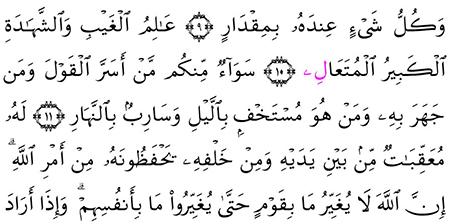 وَكُلُّ شَىْءٍ عِندَهُۥ بِمِقْدَارٍ ۝٩ عَـٰلِمُ ٱلْغَيْبِ وَٱلشَّهَـٰدَةِ
ٱلْكَبِيرُ ٱلْمُتَعَالِۦ ۝١٠ سَوَآءٌ مِّنكُم مَّنْ أَسَرَّ ٱلْقَوْلَ وَمَن
جَهَرَ بِهِۦ وَمَنْ هُوَ مُسْتَخْفٍۭ بِٱلَّيْلِ وَسَارِبٌۢ بِٱلنَّهَارِ ۝١١ لَهُۥ
مُعَقِّبَـٰتٌ مِّنۢ بَيْنِ يَدَيْهِ وَمِنْ خَلْفِهِۦ يَحْفَظُونَهُۥ مِنْ أَمْرِ ٱللَّهِ ۗ
إِنَّ ٱللَّهَ لَا يُغَيِّرُ مَا بِقَوْمٍ حَتَّىٰ يُغَيِّرُوا۟ مَا بِأَنفُسِهِمْ ۗ وَإِذَآ أَرَادَ